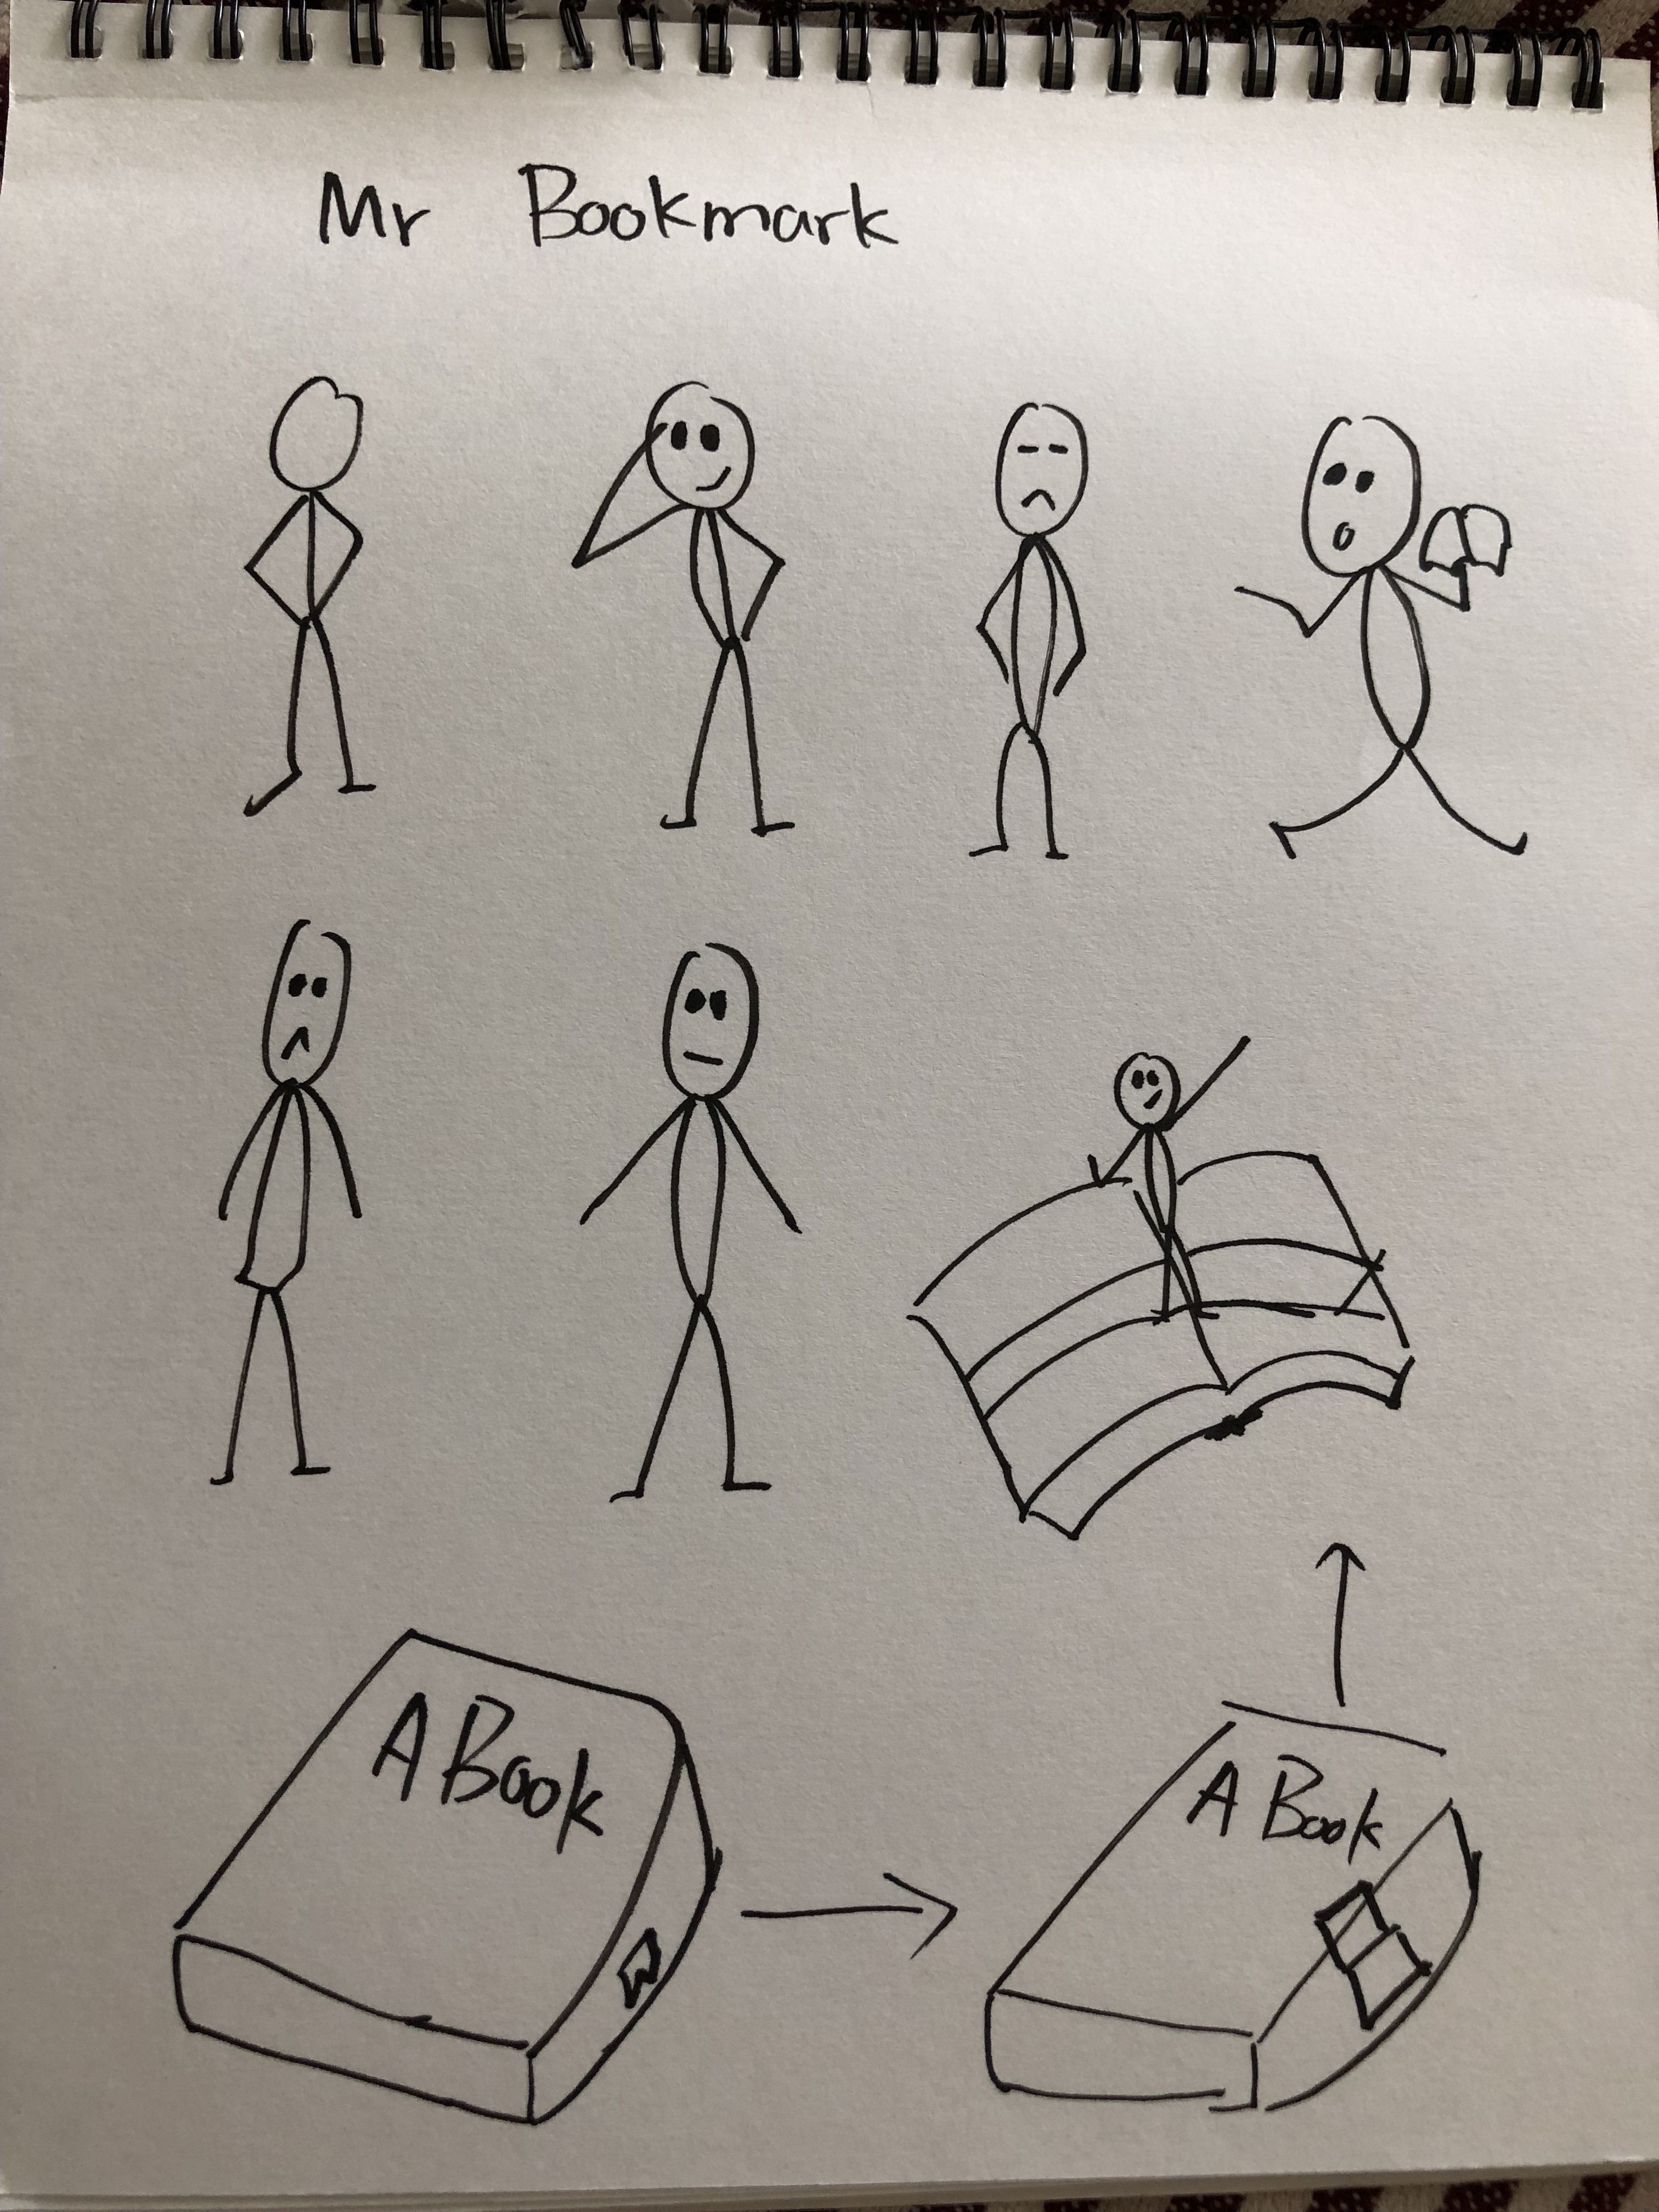 Mr Bookmark
A Book
A Book